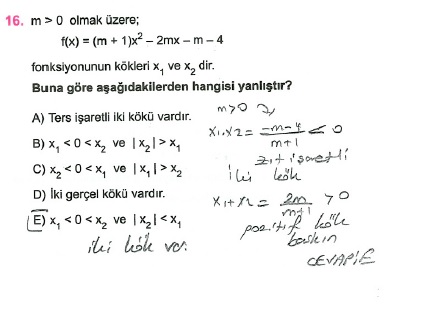 16. m > 0 olmak üzere;
f(x) = (m + 1)x² – 2mx – m – 4
fonksiyonunun kökleri x₁ ve x₂ dir.
Buna göre aşağıdakilerden hangisi yanlıştır?
A) Ters işaretli iki kökü vardır.
B) x₁ < 0 < x₂ ve |x₂| > x₁
C) x₂ < 0 < x₁ ve |x₁| > x₂
D) İki gerçel kökü vardır.
E) x₁ < 0 < x₂ ve |x₂| < x₁
iki kök var.
m>0
x₁.x₂ = (-m-4)/(m+1) < 0
zıt işaretli
iki kök
x₁+x₂ = 2m/(m+1) > 0
pozitif kök
baskın
CEVAP:E